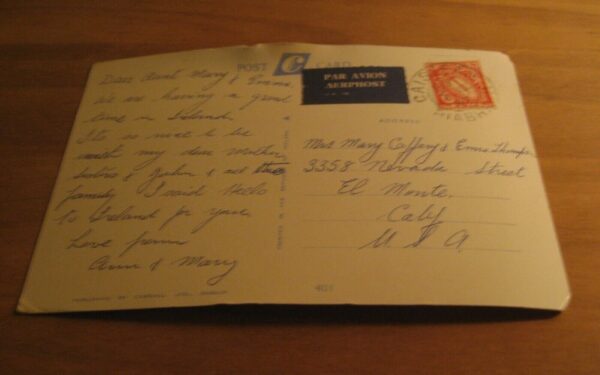 POST C CARD
Dear Aunt Mary & Emma
We are having a good
time in Ireland.
Its so nice to be
with my dear Mother,
& John & all the
family I said Hello
to Ireland for you
Love from
Ann & Mary
PAR AVION
AERPHOST
ADDRESS
Mrs Mary Caffery & Emma Thompson
3358 Nevada Street
El Monte.
Caly
U S A.
PRINTED IN
PUBLISHED BY CARDALL LTD., DUBLIN